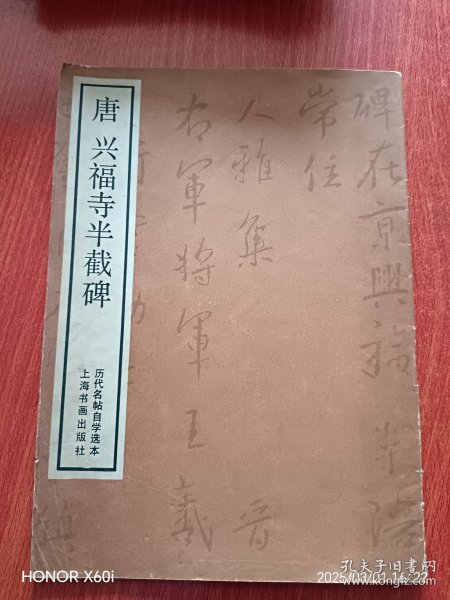 唐 兴福寺半截碑
历代名帖自学选本
上海书画出版社
碑在京興福寺陪
常住
人雅集
右軍將軍王羲
晋
HONOR X60i
2025/03/01 16:22
孔夫子旧书网
www.kongfz.com